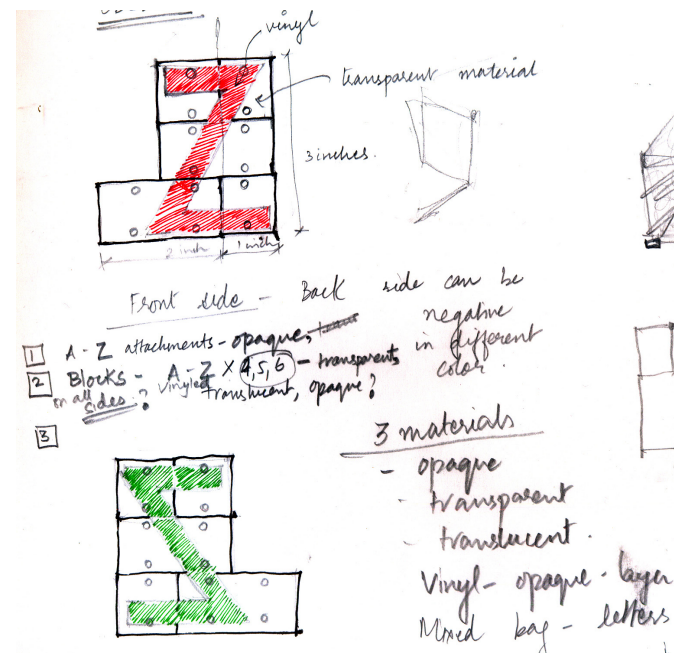 vinyl
transparent material
3 inches.
2 inch
1 inch
Front side - Back side can be negative in different color.
1 A-Z attachments - opaque,
2 Blocks - A-Z X 4,5,6 - transparents
on all sides? vinyled translucent, opaque?
3
3 materials
- opaque
- transparent
- translucent.
Vinyl - opaque - layer
Mixed bag - letters